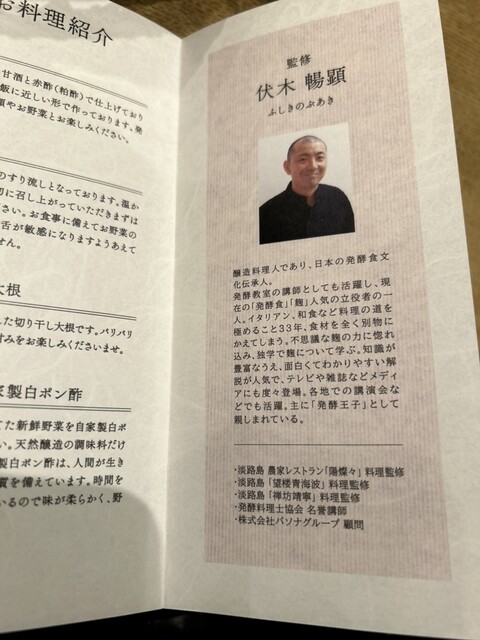 お料理紹介
甘酒と赤酢(粕酢)で仕上げており
飯に近しい形で作っております。発
類やお野菜とお楽しみください。
のすり流しとなっております。温か
切に召し上がっていただきまずは
さい。お食事に備えてお野菜の
舌が敏感になりますようあえて
せん。
大根
した切り干し大根です。パリパリ
甘みをお楽しみくださいませ。
家製白ポン酢
てた新鮮野菜を自家製白ポ
い。天然醸造の調味料だけ
製白ポン酢は、人間が生き
質を備えています。時間を
いるので味が柔らかく、野
監修
伏木 暢顕
ふしきのぶあき
醸造料理人であり、日本の発酵食文
化伝承人。
発酵教室の講師としても活躍し、現
在の「発酵食」「麹」人気の立役者の一
人。イタリアン、和食など料理の道を
極めること33年、食材を全く別物に
かえてしまう。不思議な麹の力に惚れ
込み、独学で麹について学ぶ。知識が
豊富なうえ、面白くてわかりやすい解
説が人気で、テレビや雑誌などメディ
アにも度々登場。各地での講演会な
どでも活躍。主に「発酵王子」として
親しまれている。
・淡路島 農家レストラン「陽燦々」 料理監修
・淡路島 「望楼青海波」 料理監修
・淡路島 「禅坊靖寧」 料理監修
・発酵料理士協会 名誉講師
・株式会社パソナグループ 顧問